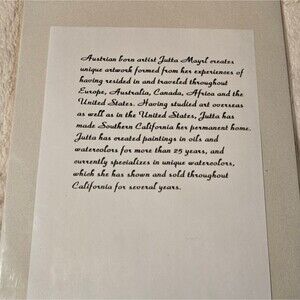 Austrian born artist Jutta Mayrl creates
unique artwork formed from her experiences of
having resided in and traveled throughout
Europe, Australia, Canada, Africa and the
United States. Having studied art overseas
as well as in the United States, Jutta has
made Southern California her permanent home.
Jutta has created paintings in oils and
watercolors for more than 25 years, and
currently specializes in unique watercolors,
which she has shown and sold throughout
California for several years.